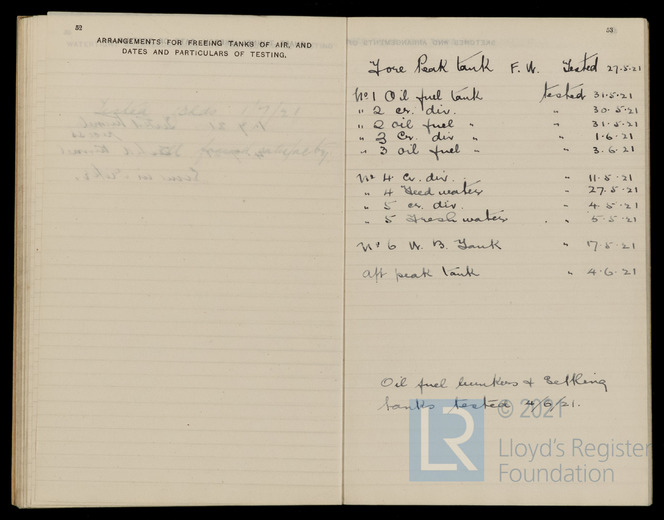 52
ARRANGEMENTS FOR FREEING TANKS OF AIR, AND
DATES AND PARTICULARS OF TESTING.
53
Fore Peak tank F. W. Tested 27.5.21
No 1 Oil fuel tank tested 31.5.21
" 2 cr. div. " 30.5.21
" 2 oil fuel " " 31.5.21
" 3 Cr. div " " 1.6.21
" 3 oil fuel " " 3.6.21
No 4 Cr. div. " 11.5.21
" 4 Feed water " 27.5.21
" 5 cr. div. " 4.5.21
" 5 Fresh water " 5.5.21
No 6 W. B. Tank " 17.5.21
Aft peak tank " 4.6.21
Oil fuel bunkers & Settling
tanks tested 4/6/21.
© 2021
LR
Lloyd's Register
Foundation